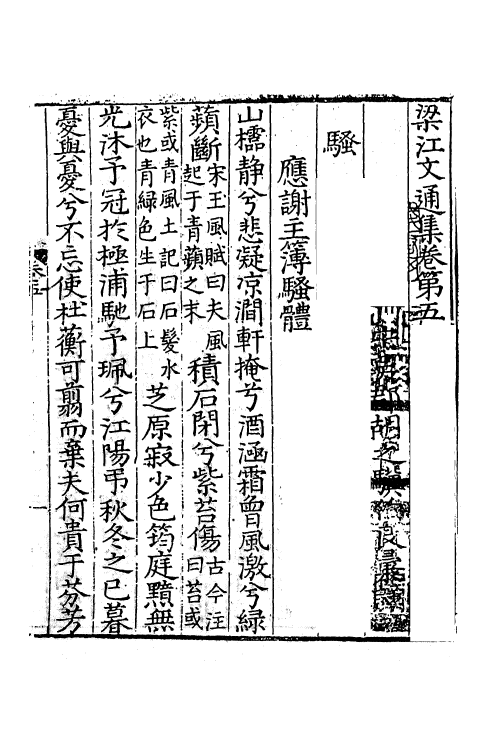 梁江文通集卷第五
胡之驥
騷
應謝主簿騷體
山檽静兮悲凝凉澗軒掩兮酒涵霜曾風激兮緑
蘋斷宋玉風賦曰夫風起于青蘋之末積石閉兮紫苔傷古今注曰苔或
紫或青風土記曰石髮水衣也青綠色生于石上芝原寂少色筠庭黯無
光沐予冠於極浦馳予珮兮江陽弔秋冬之已暮
憂與憂兮不忘使杜蘅可翦而棄夫何貴于芬芳
卷五
一